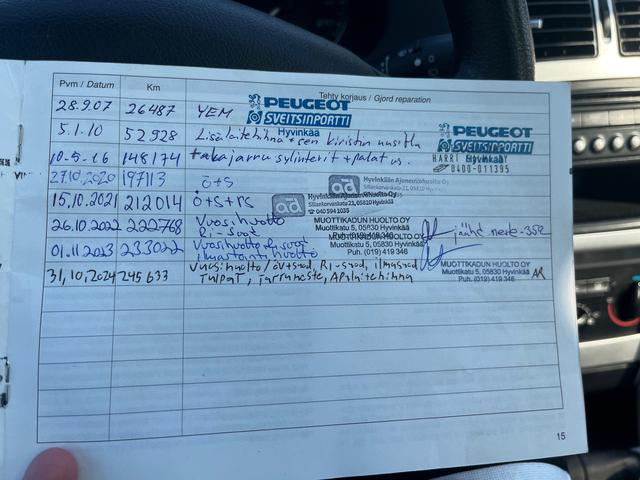 Pvm / Datum Km Tehty korjaus / Gjord reparation
28.9.07 26487 YEM PEUGEOT
SVEITSINPORTTI
Hyvinkää
5.1.10 52928 Lisälaitehihna + sen kiristin uusittu PEUGEOT
SVEITSINPORTTI
10.5.16 148174 takajarru sylinterit + palat us. HARRI
0400-011395
27.10.2020 197113 ö+s ad Hyvinkään Ajoneuvihuolto Oy
Sillankorvankatu 21, 05810 Hyvinkää
15.10.2021 212014 ö+s+rs ad Hyvinkään
Sillankorvankatu 21, 05810 Hyvinkää
040 594 1035
26.10.2022 222768 Vuosihuolto MUOTTIKADUN HUOLTO OY
Ri-suod Muottikatu 5, 05830 Hyvinkää jäähd.neste -35c
Puh. (019) 419 346
01.11.2023 233022 Vuosihuolto Ri-suod MUOTTIKADUN HUOLTO OY
ilmastointihuolto Muottikatu 5, 05830 Hyvinkää
Puh. (019) 419 346
31,10,2024 245 633 Vuosihuolto / öv+suod, Ri-suod, ilmasuod MUOTTIKADUN HUOLTO OY
Tulpat, jarruneste, Apulaitehihna Muottikatu 5, 05830 Hyvinkää AR
Puh. (019) 419 346
15